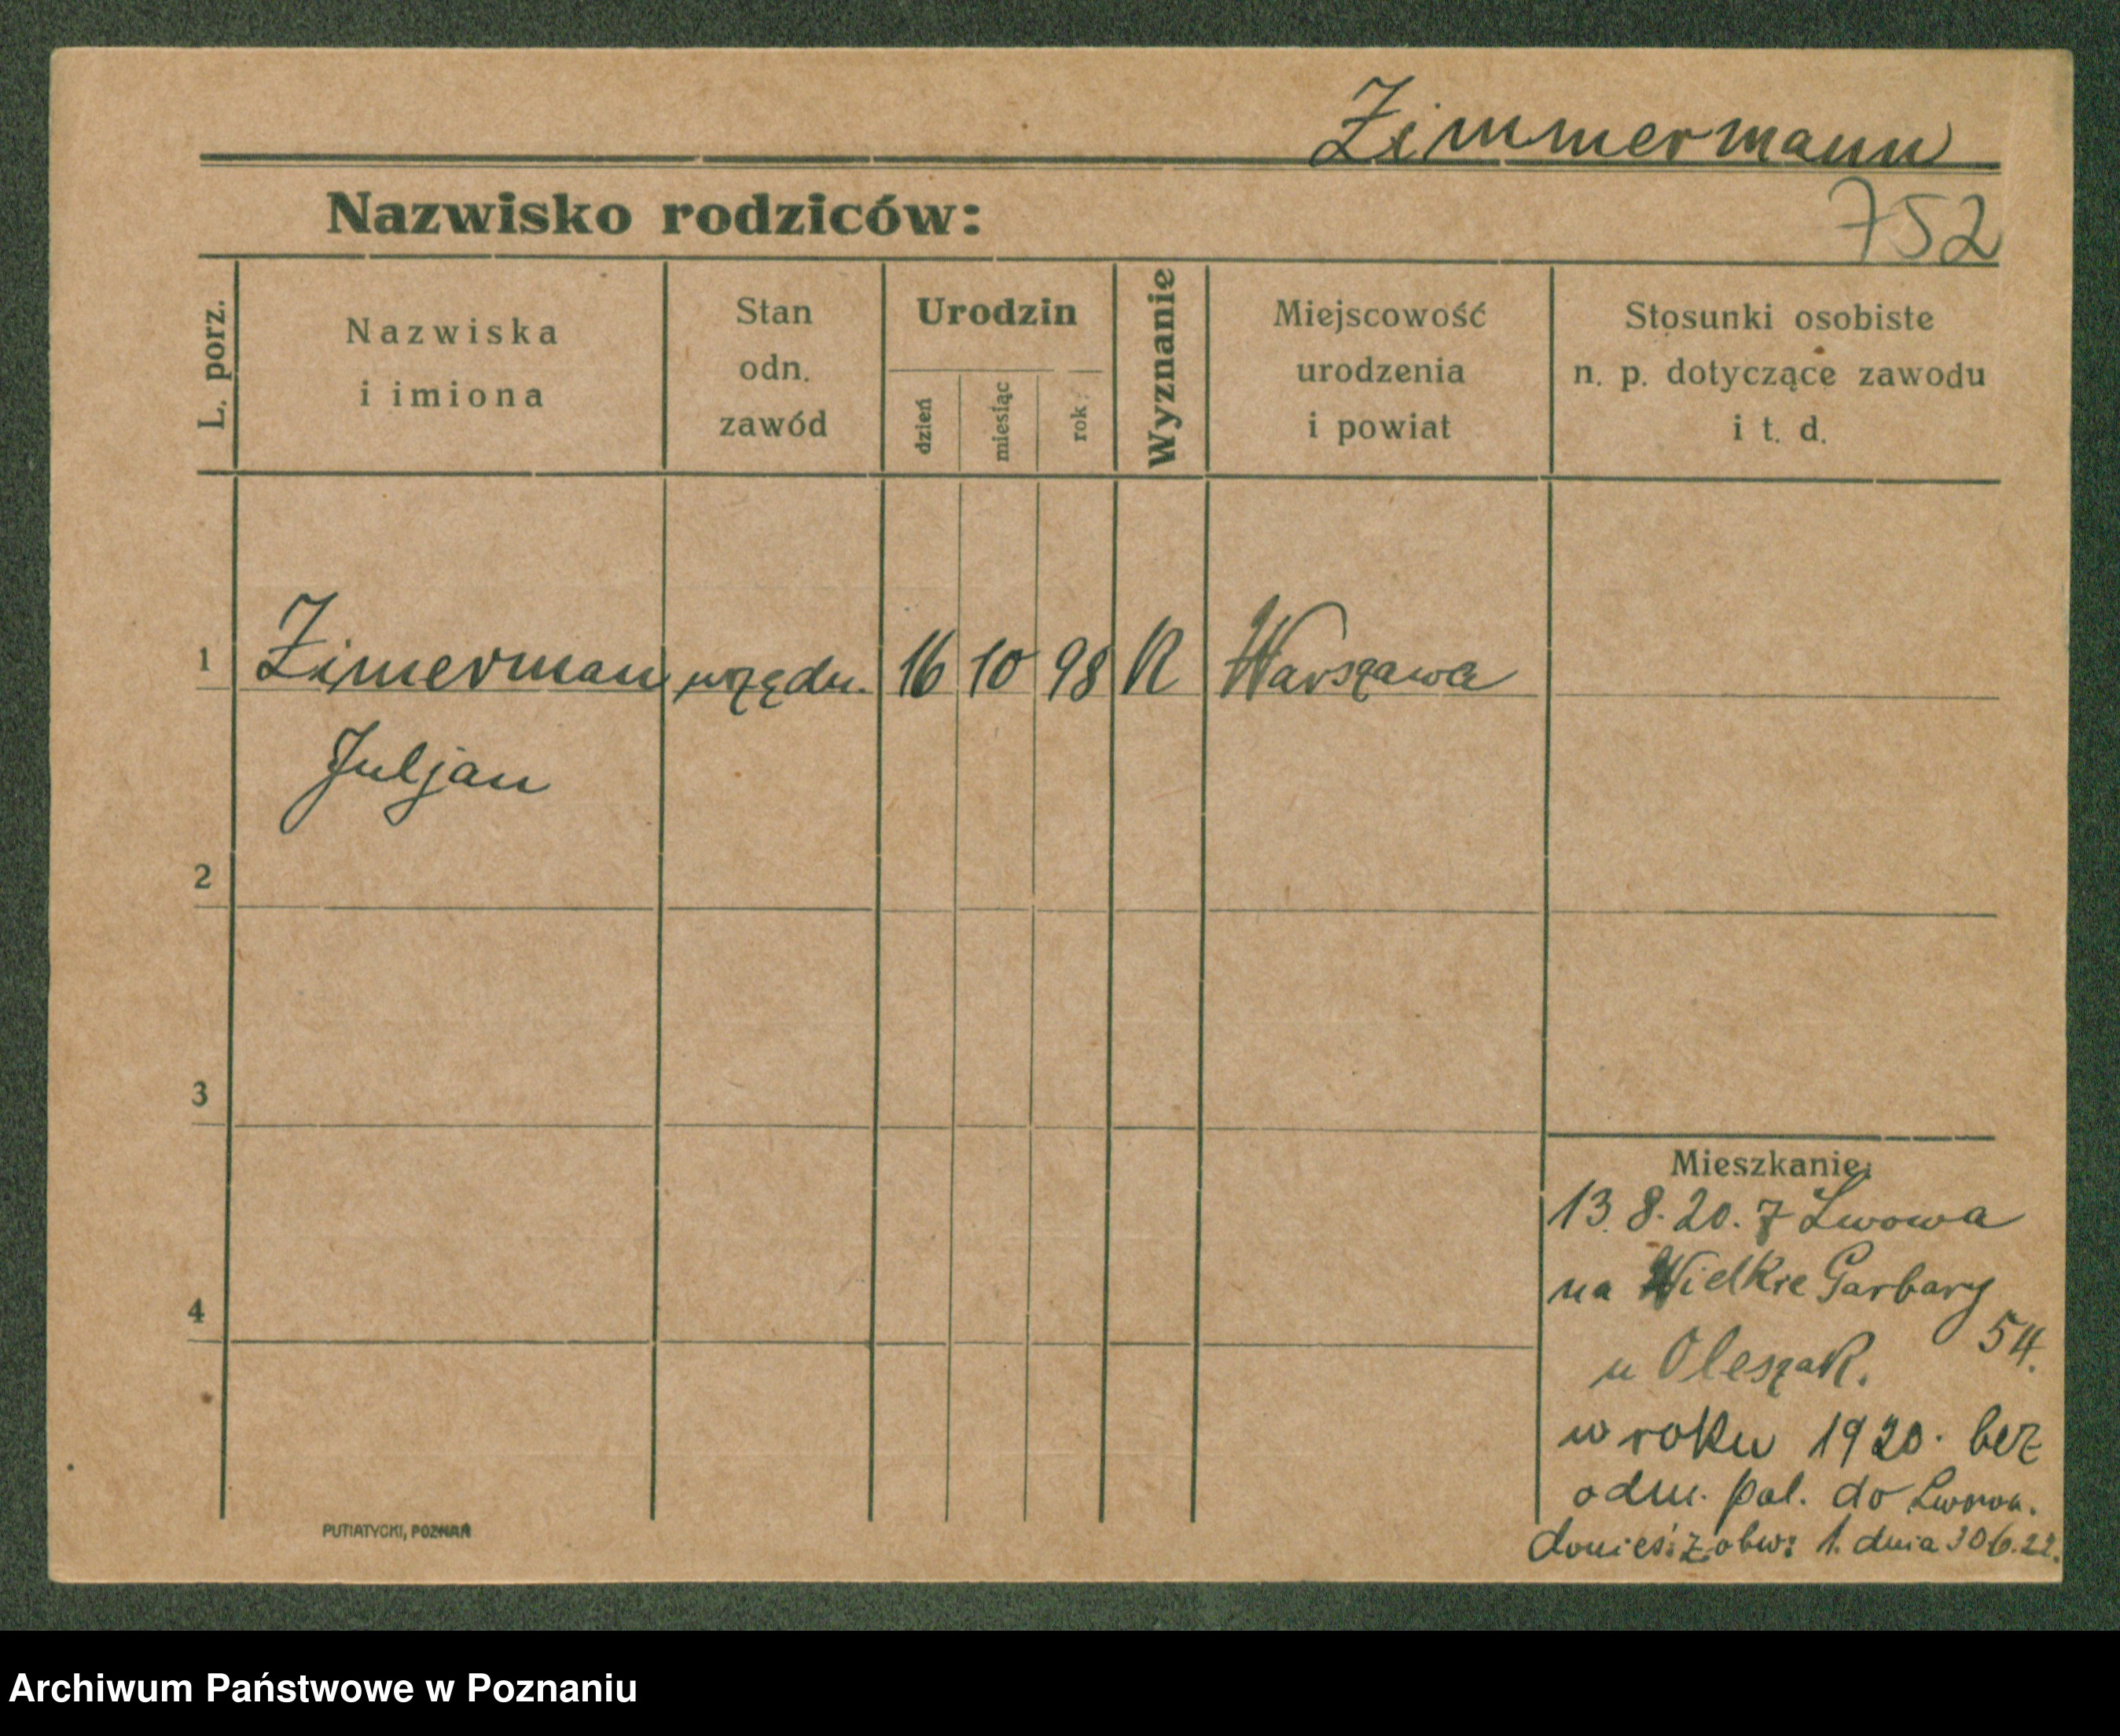 Zimmermann
Nazwisko rodziców:
752
L. porz.
Nazwiska
i imiona
Stan
odn.
zawód
Urodzin
dzień
miesiąc
rok
Wyznanie
Miejscowość
urodzenia
i powiat
Stosunki osobiste
n. p. dotyczące zawodu
i t. d.
1 Zimerman urzędn. 16 10 98 Warszawa
Juljan
2
3
4
Mieszkanie:
13. 8. 20. z Lwowa
na Wielkie Garbary
54.
u Oleszak.
w roku 1920. bez
odm. pol. do Lwowa.
donieś: z obw: 1. dnia 30 6. 22.
PUTIATYCKI, POZNAŃ
Archiwum Państwowe w Poznaniu